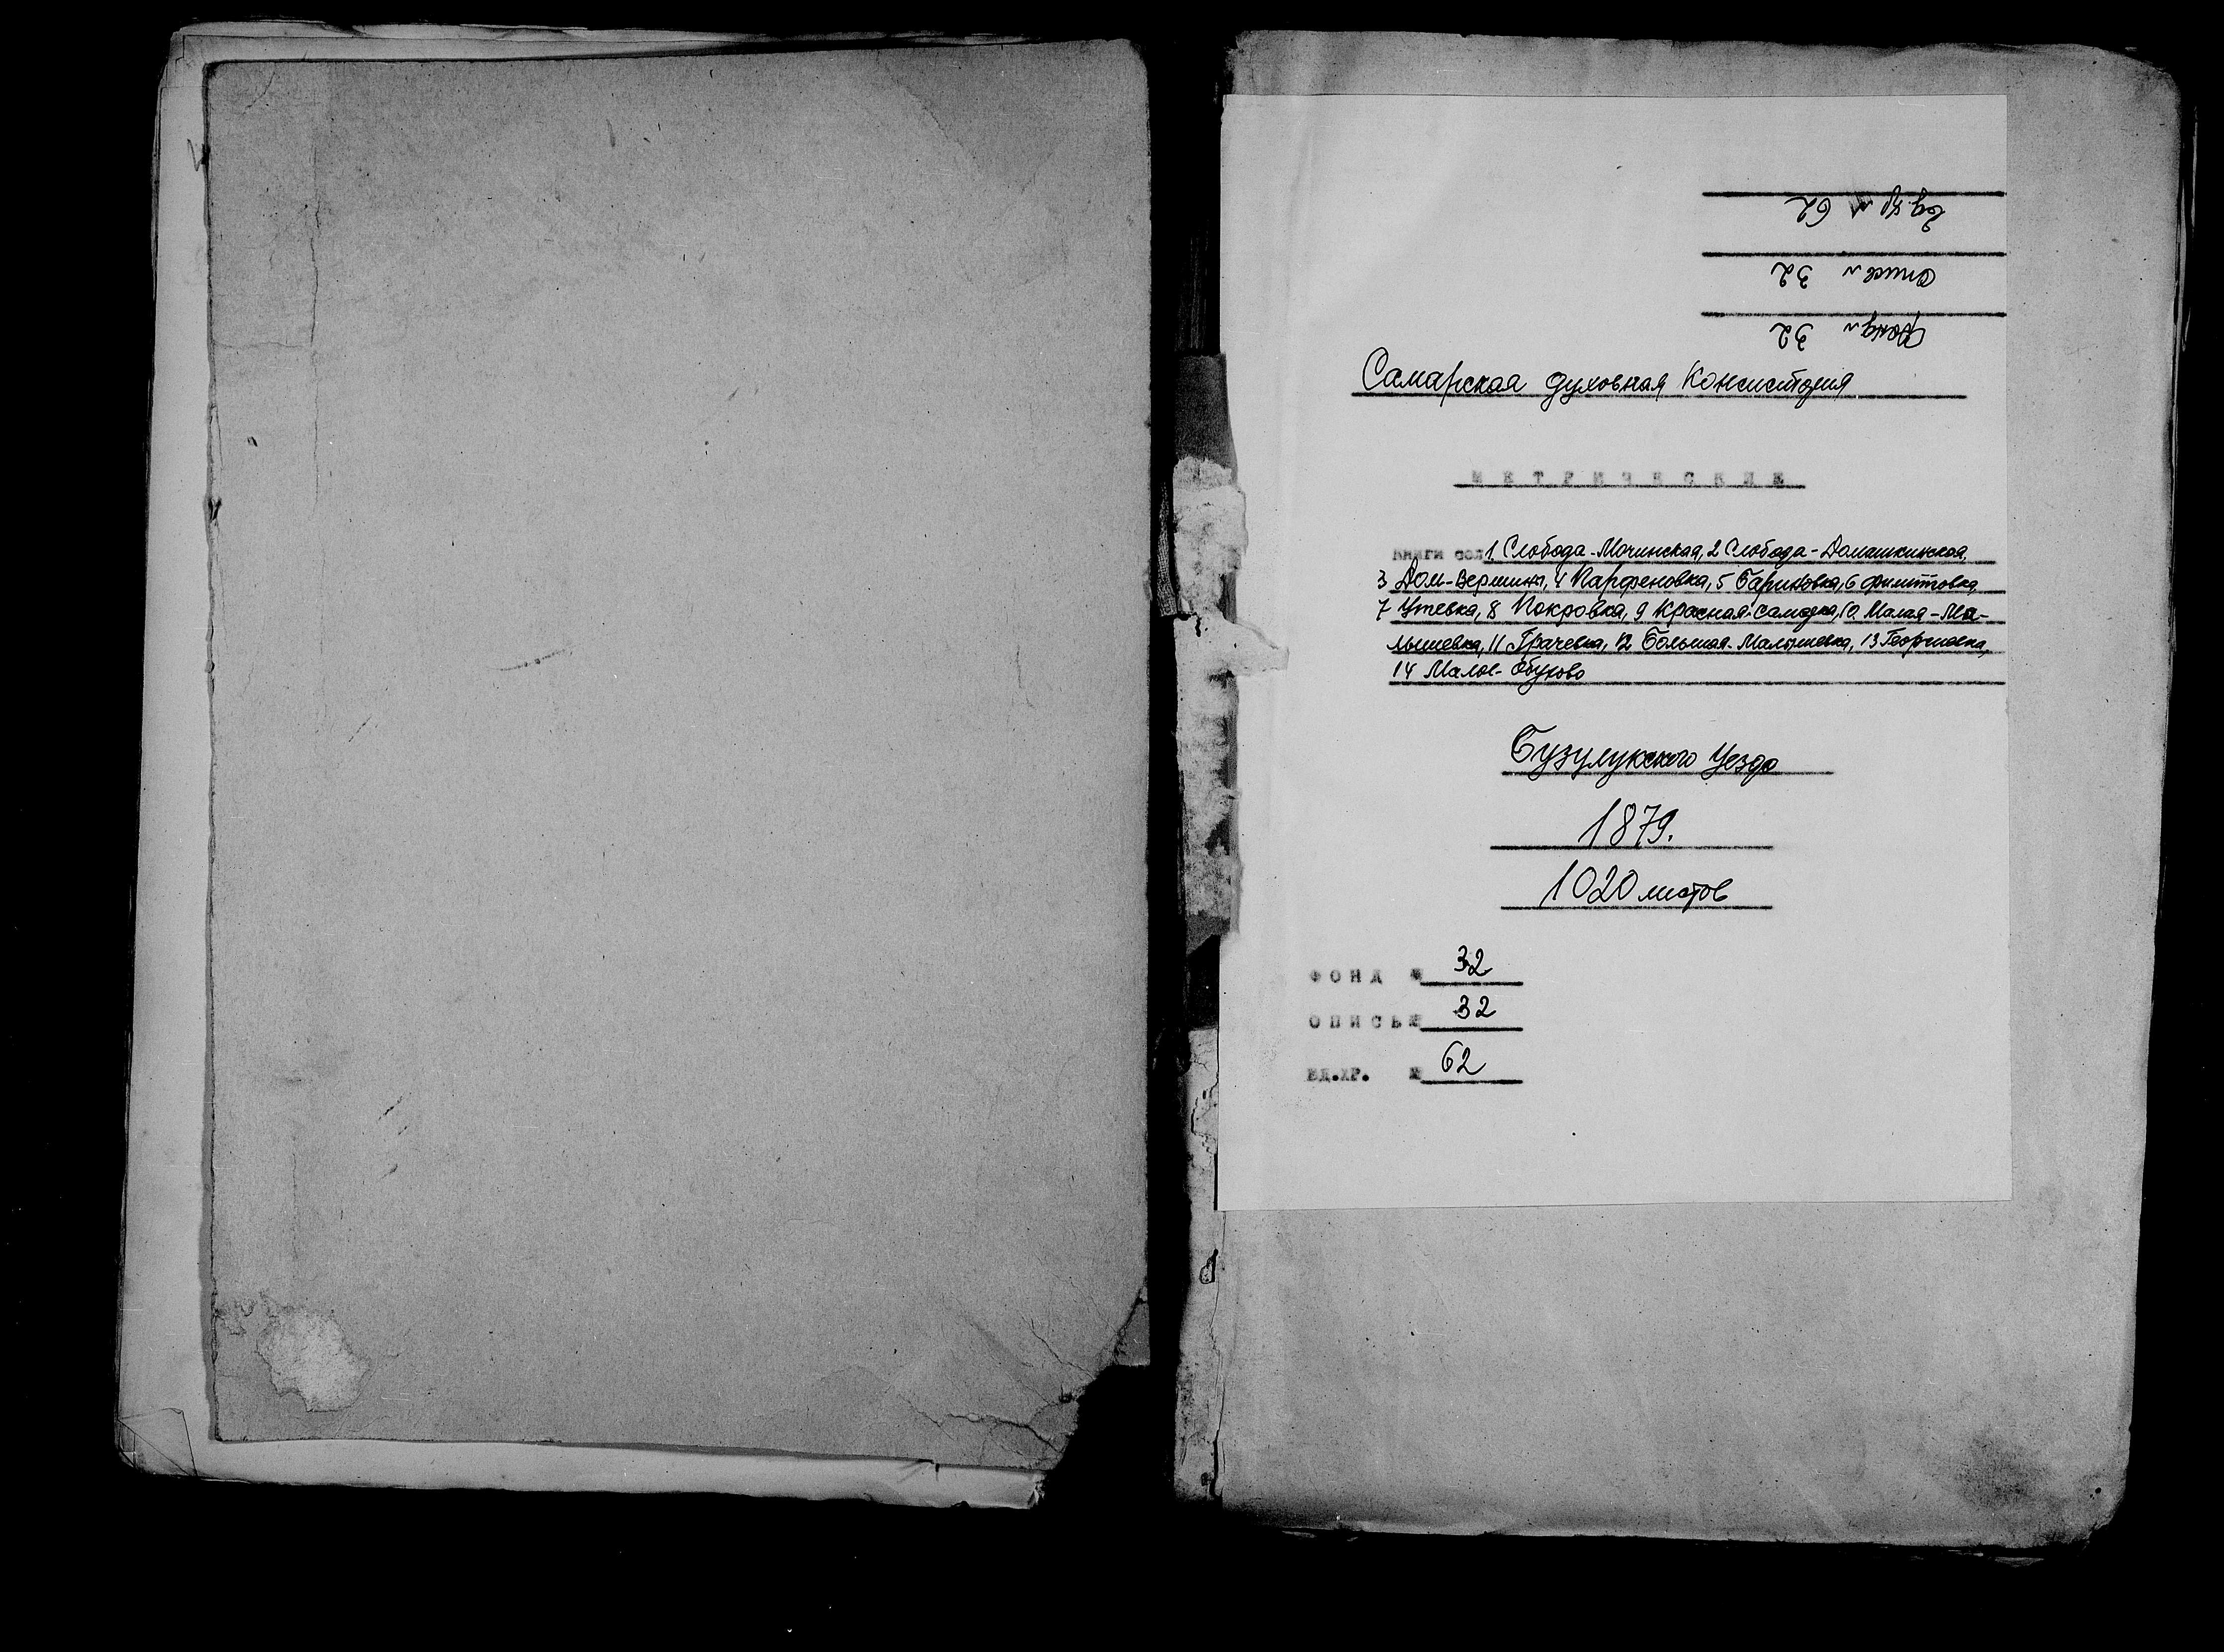 ед.хр № 62
Опись № 32
Фонд № 32
Самарская духовная Консистория
МЕТРИЧЕСКИЕ
Книги сел 1 Слобода-Мочинская, 2 Слобода-Домашкинская,
3 Дом-Вершины, 4 Парфеновка, 5 Бариновка, 6 Филипповка,
7 Утевка, 8 Покровка, 9 Красная-Самарка, 10. Малая-Ма-
лышевка, 11 Грачевка, 12 Большая-Малышевка, 13 Георгиевка,
14 Малое-Обухово
Бузулукского Уезда
1879.
1020 листов
ФОНД № 32
ОПИСЬ № 32
ЕД.ХР. № 62